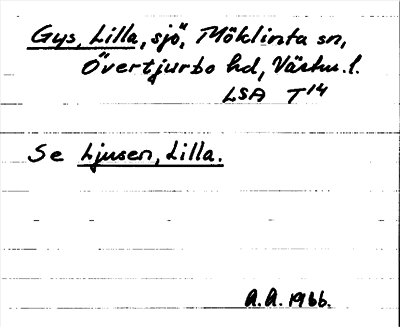 Gys, Lilla, sjö, Möklinta sn,
Övertjurbo hd, Västm. l.
LSA T14
Se Ljusen, Lilla.
A.A. 1966.